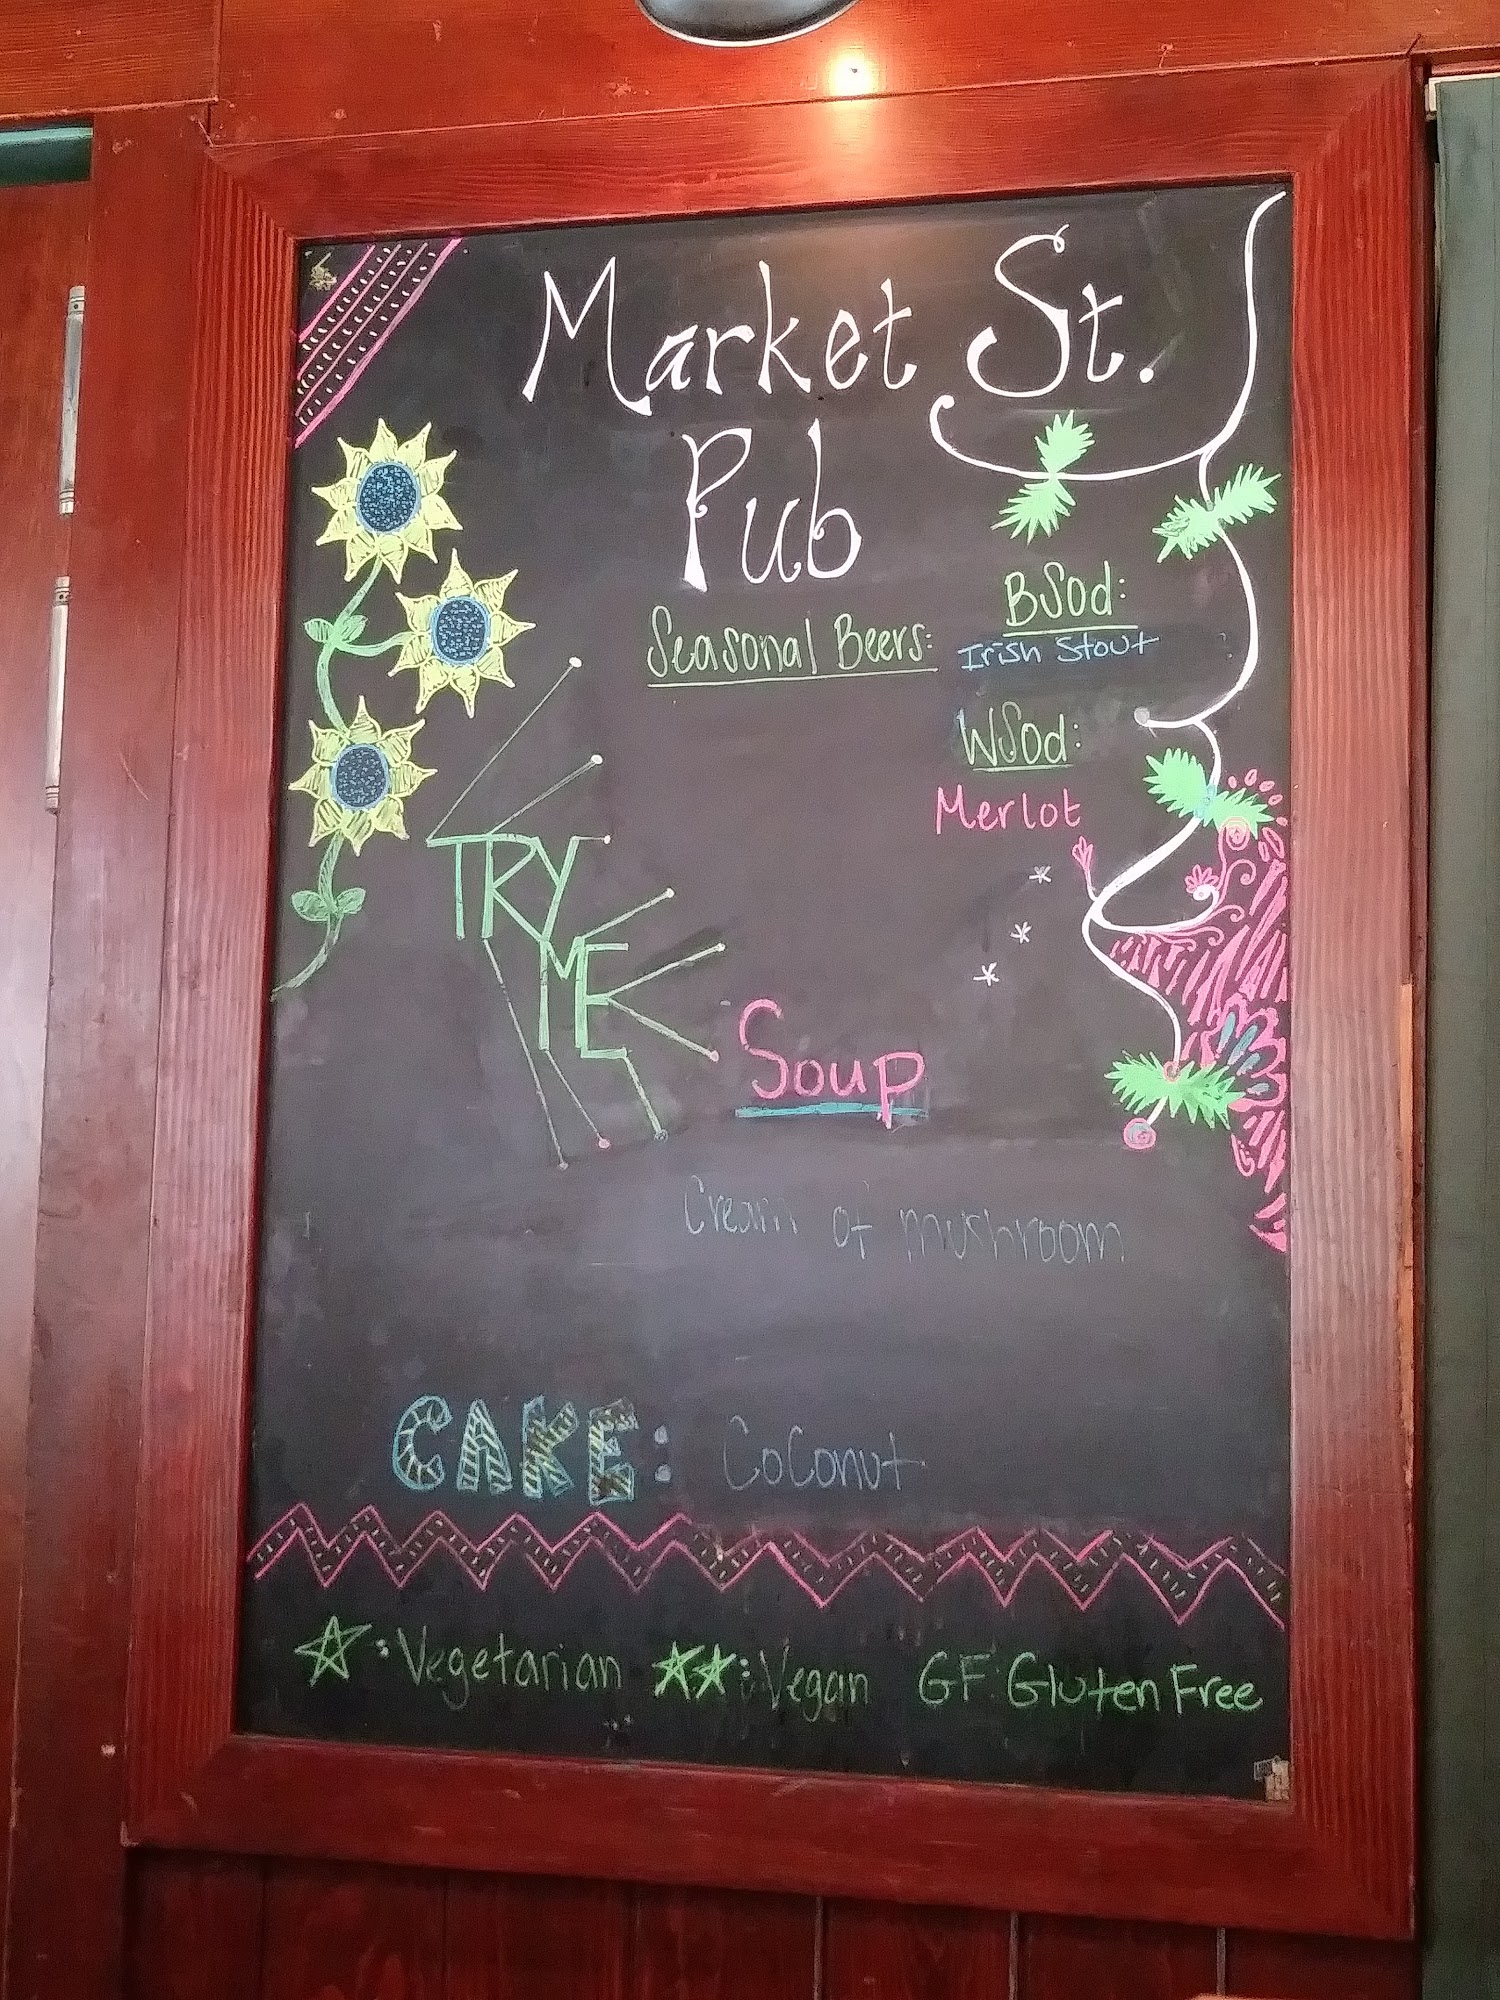 Market St.
Pub
Seasonal Beers:
BSOd:
Irish Stout
WSOd:
Merlot
TRY
ME
Soup
Cream of mushroom
CAKE: CoConut
☆: Vegetarian ☆☆: Vegan GF: Gluten Free